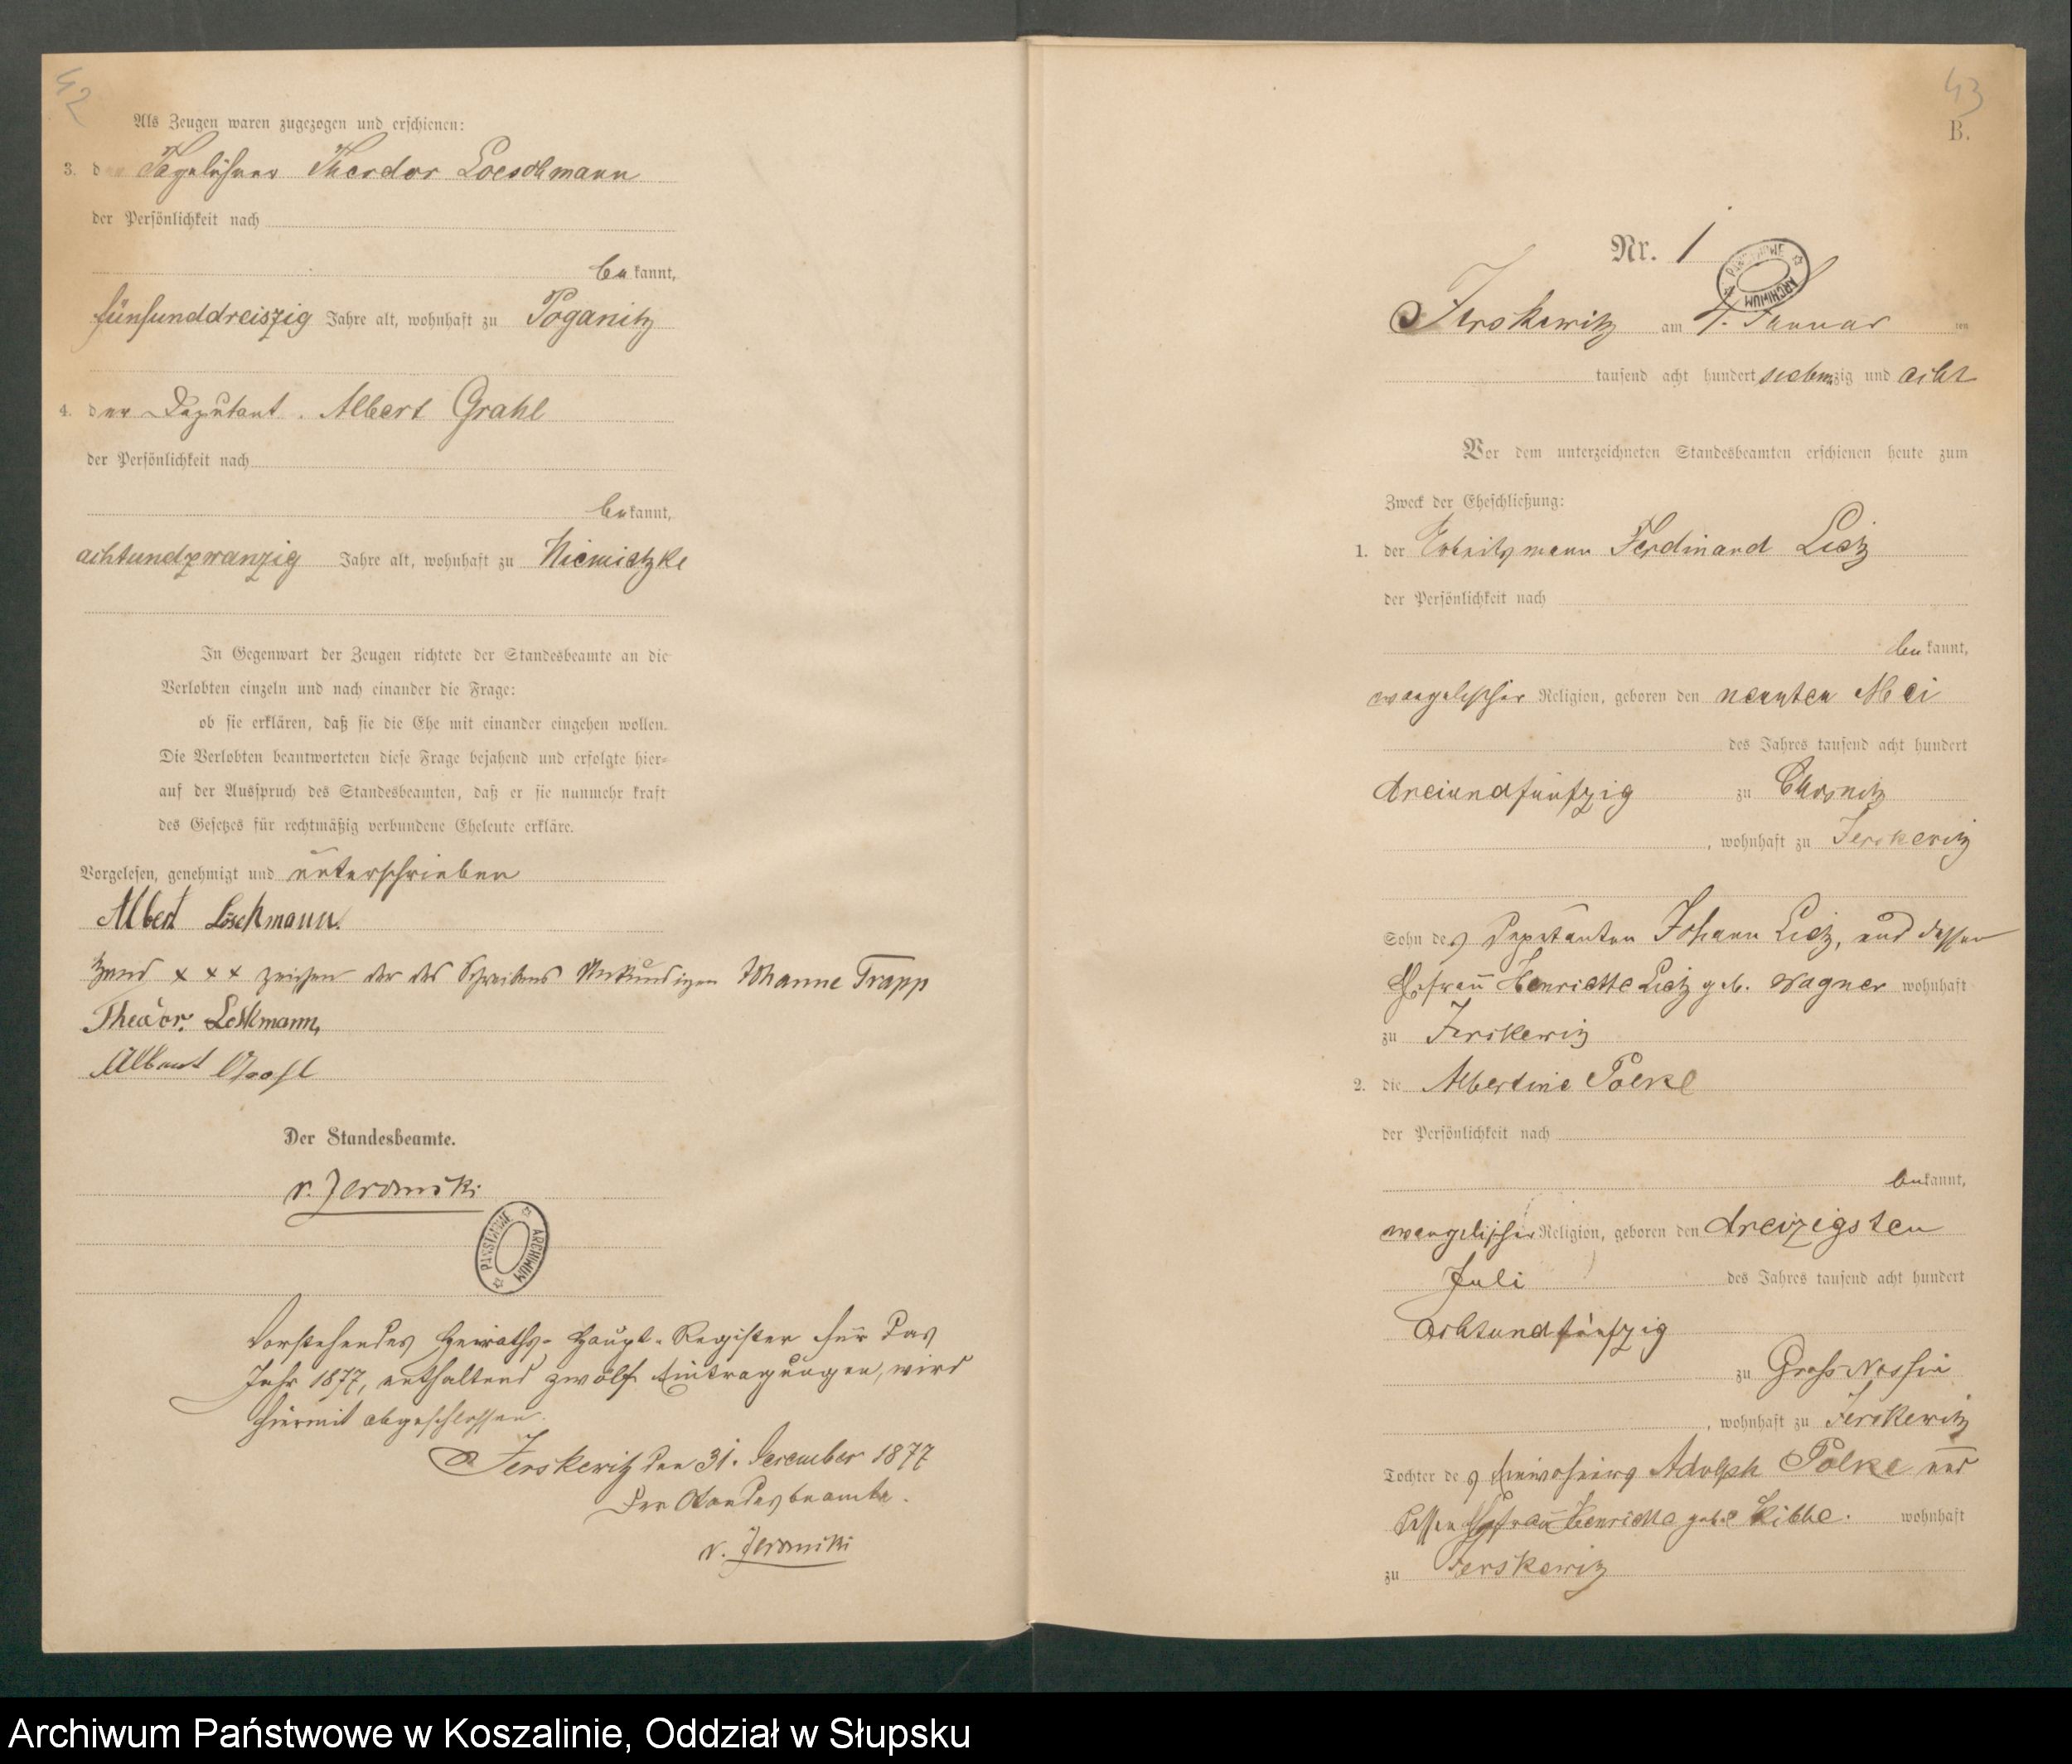 42
Als Zeugen waren zugezogen und erschienen:
3. der Tagelöhner Theodor Loeschmann
der Persönlichkeit nach
bekannt,
fünfunddreiszig Jahre alt, wohnhaft zu Poganitz
4. der Deputant Albert Grahl
der Persönlichkeit nach
bekannt,
achtundzwanzig Jahre alt, wohnhaft zu Niemietzke
In Gegenwart der Zeugen richtete der Standesbeamte an die
Verlobten einzeln und nach einander die Frage:
ob sie erklären, daß sie die Ehe mit einander eingehen wollen.
Die Verlobten beantworteten diese Frage bejahend und erfolgte hier-
auf der Ausspruch des Standesbeamten, daß er sie nunmehr kraft
des Gesetzes für rechtmäßig verbundene Eheleute erkläre.
Vorgelesen, genehmigt und unterschrieben
Albert Löschmann.
Hand x x x zeichen der des Schreibens Unkundigen Johanne Trapp
Theodor
Albert Grahl
Der Standesbeamte.
v. Jeromski
PAŃSTWOWE ARCHIWUM
Vorstehendes Heiraths-Haupt-Register für das
Jahr 1877, enthaltend zwölf Eintragungen, wird
hiermit abgeschlossen.
Jerskewitz den 31. December 1877
Der Standesbeamte.
v. Jeromski
43
B.
Nr. 1
PAŃSTWOWE ARCHIWUM
Jerskewitz am Januar ten
tausend acht hundert siebenzig und acht
Vor dem unterzeichneten Standesbeamten erschienen heute zum
Zweck der Eheschließung:
1. der Arbeitsmann Ferdinand Lietz
der Persönlichkeit nach
bekannt,
evangelischer Religion, geboren den neunten Mai
des Jahres tausend acht hundert
dreiundfünfzig zu
, wohnhaft zu Jerskewitz
Sohn des Deputanten Johann Lietz, und dessen
Ehefrau Henriette Lietz geb. Wagner wohnhaft
zu Jerskewitz
2. die Albertine Polke
der Persönlichkeit nach
bekannt,
evangelischer Religion, geboren den dreizigsten
Juli des Jahres tausend acht hundert
achtundfünfzig
zu Groß Nossin
, wohnhaft zu Jerskewitz
Tochter des Einwohners Adolph Polke und
dessen Ehefrau Henriette wohnhaft
zu Jerskewitz
Archiwum Państwowe w Koszalinie, Oddział w Słupsku